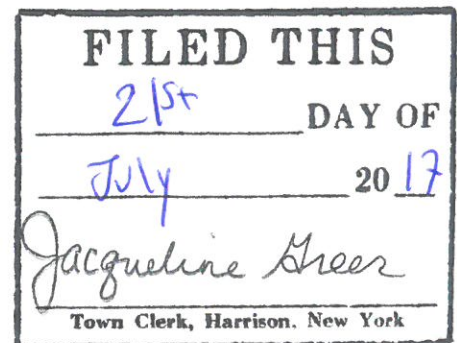 FILED THIS
21st DAY OF
July 20 17
Jacqueline Greer
Town Clerk, Harrison, New York